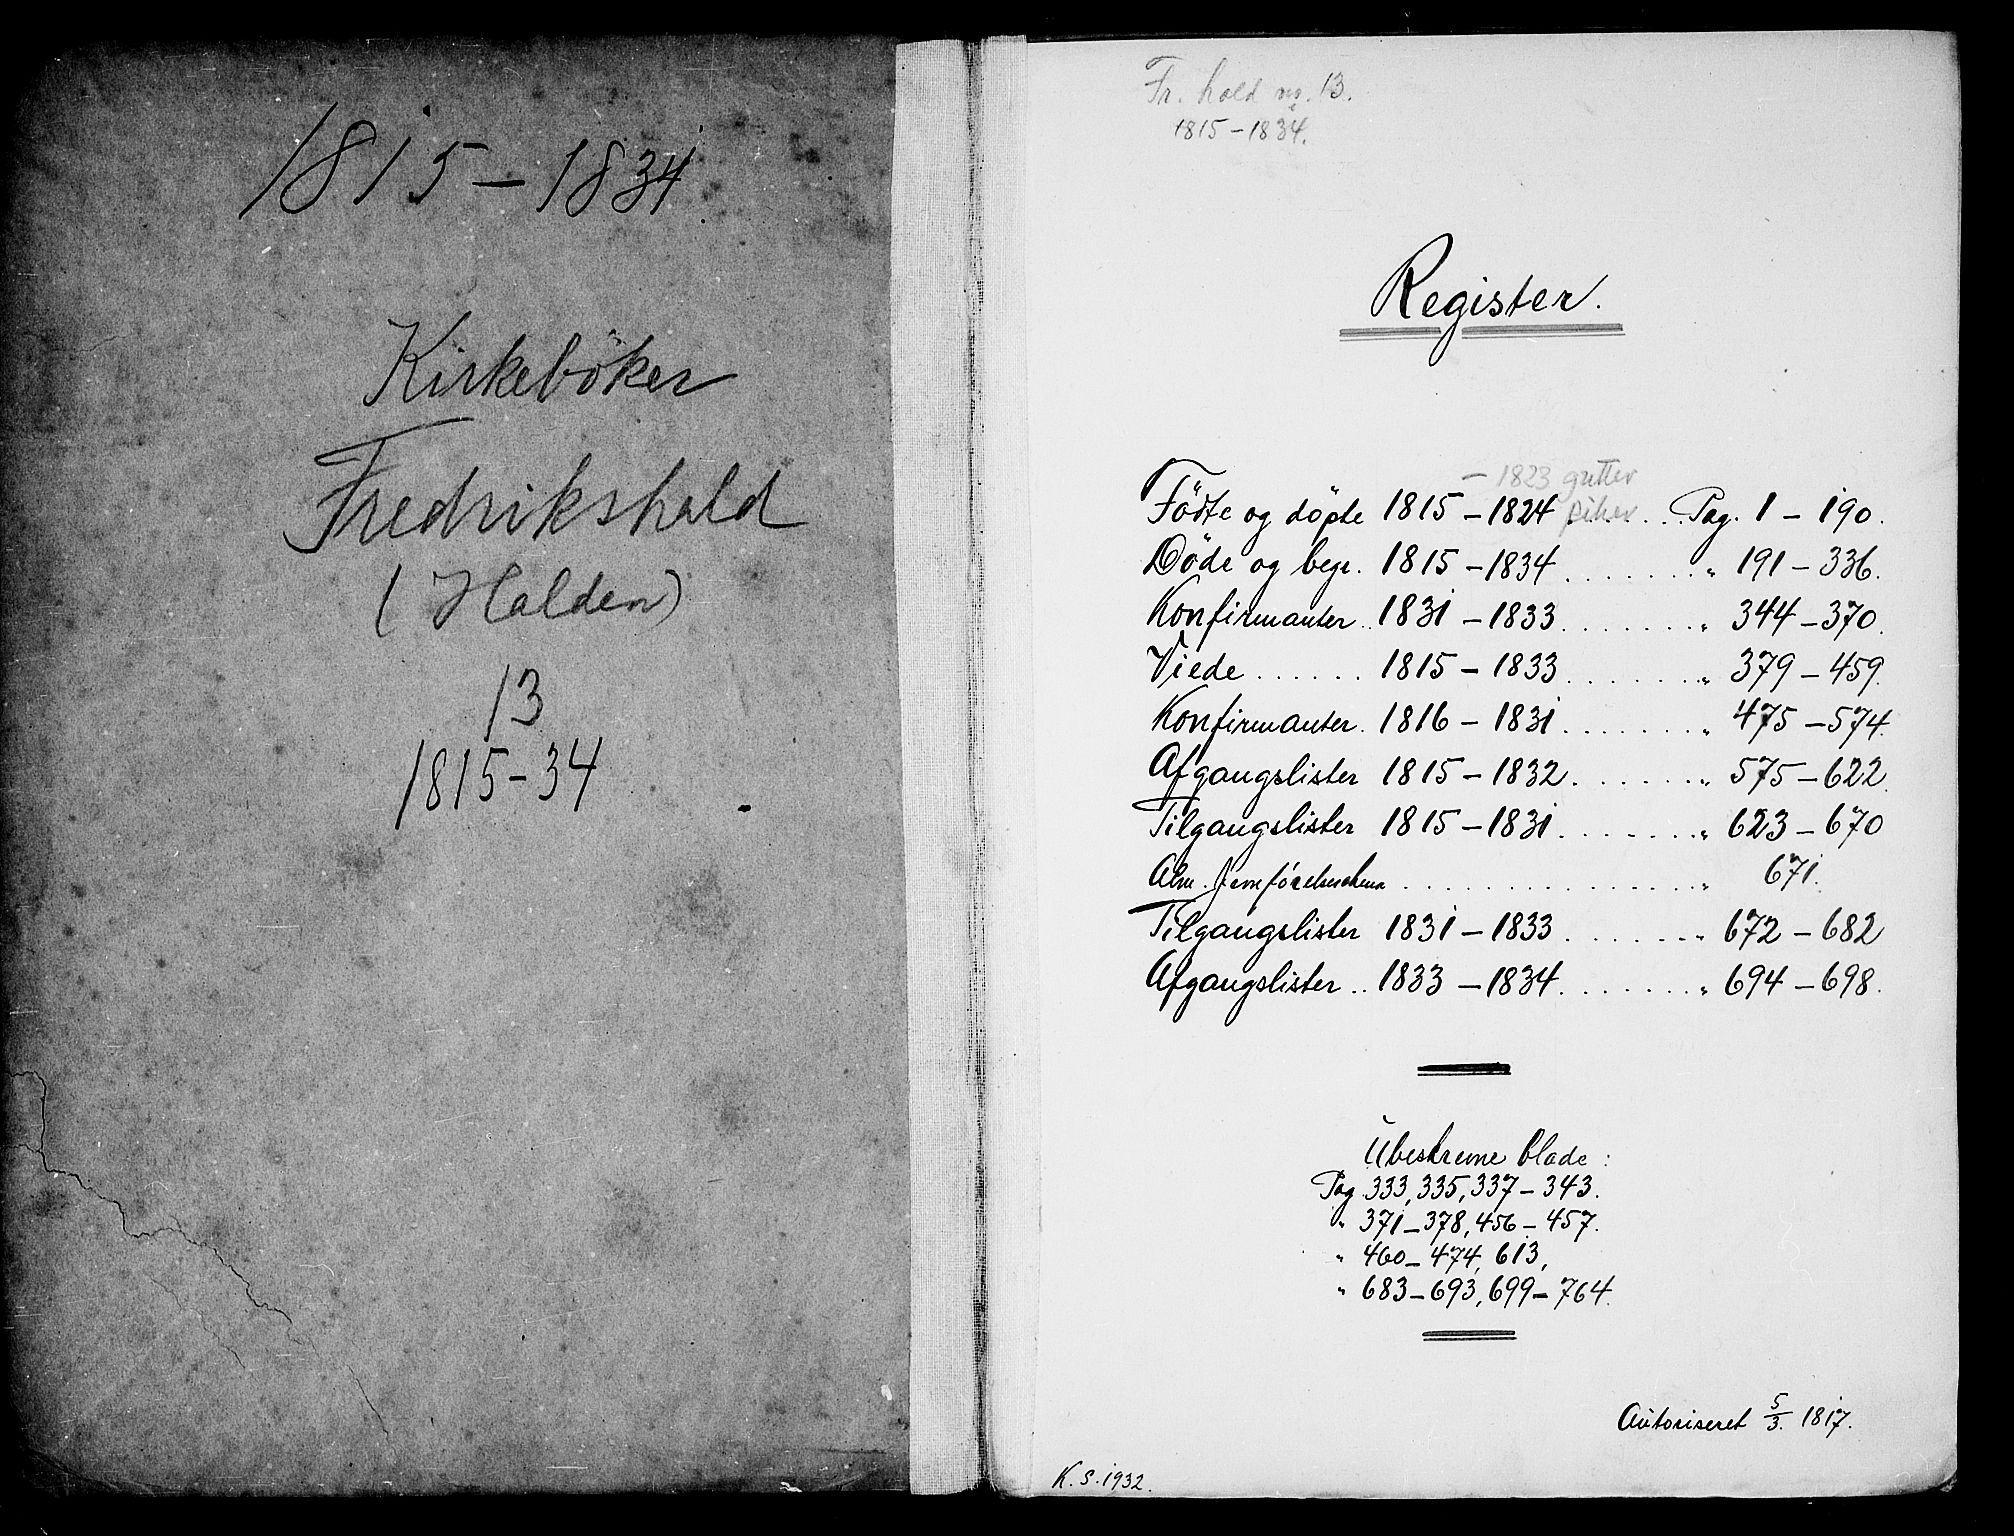 1815 – 1834.
Kirkebøker
Fredrikshald
( Halden )
13
1815–34
Fr. hald no. 13.
1815 – 1834.
Register.
– 1823 gutter
Födte og döpte 1815 – 1824 piker . . Pag. 1 – 190.
Döde og begr. 1815 – 1834 . . . . . . . " 191 – 336.
Konfirmanter . . 1831 – 1833 . . . . . . . " 344 – 370.
Viede . . . . . . 1815 – 1833 . . . . . . . " 379 – 459.
Konfirmanter . 1816 – 1831 . . . . . . . " 475 – 574.
Afgangslister 1815 – 1832 . . . . . . . " 575 – 622.
Tilgangslister 1815 – 1831 . . . . . . . " 623 – 670
Alm. Jemförelseschema . . . . . . . . . . . . " 671.
Tilgangslister 1831 – 1833 . . . . . . . " 672 – 682
Afgangslister . . 1833 – 1834 . . . . . . . " 694 – 698.
Ubeskrevne blade :
Pag. 333, 335, 337 – 343.
" 371 – 378, 456 – 457.
" 460 – 474, 613,
" 683 – 693, 699 – 764.
Autoriseret 5/3. 1817.
K. S. 1932.